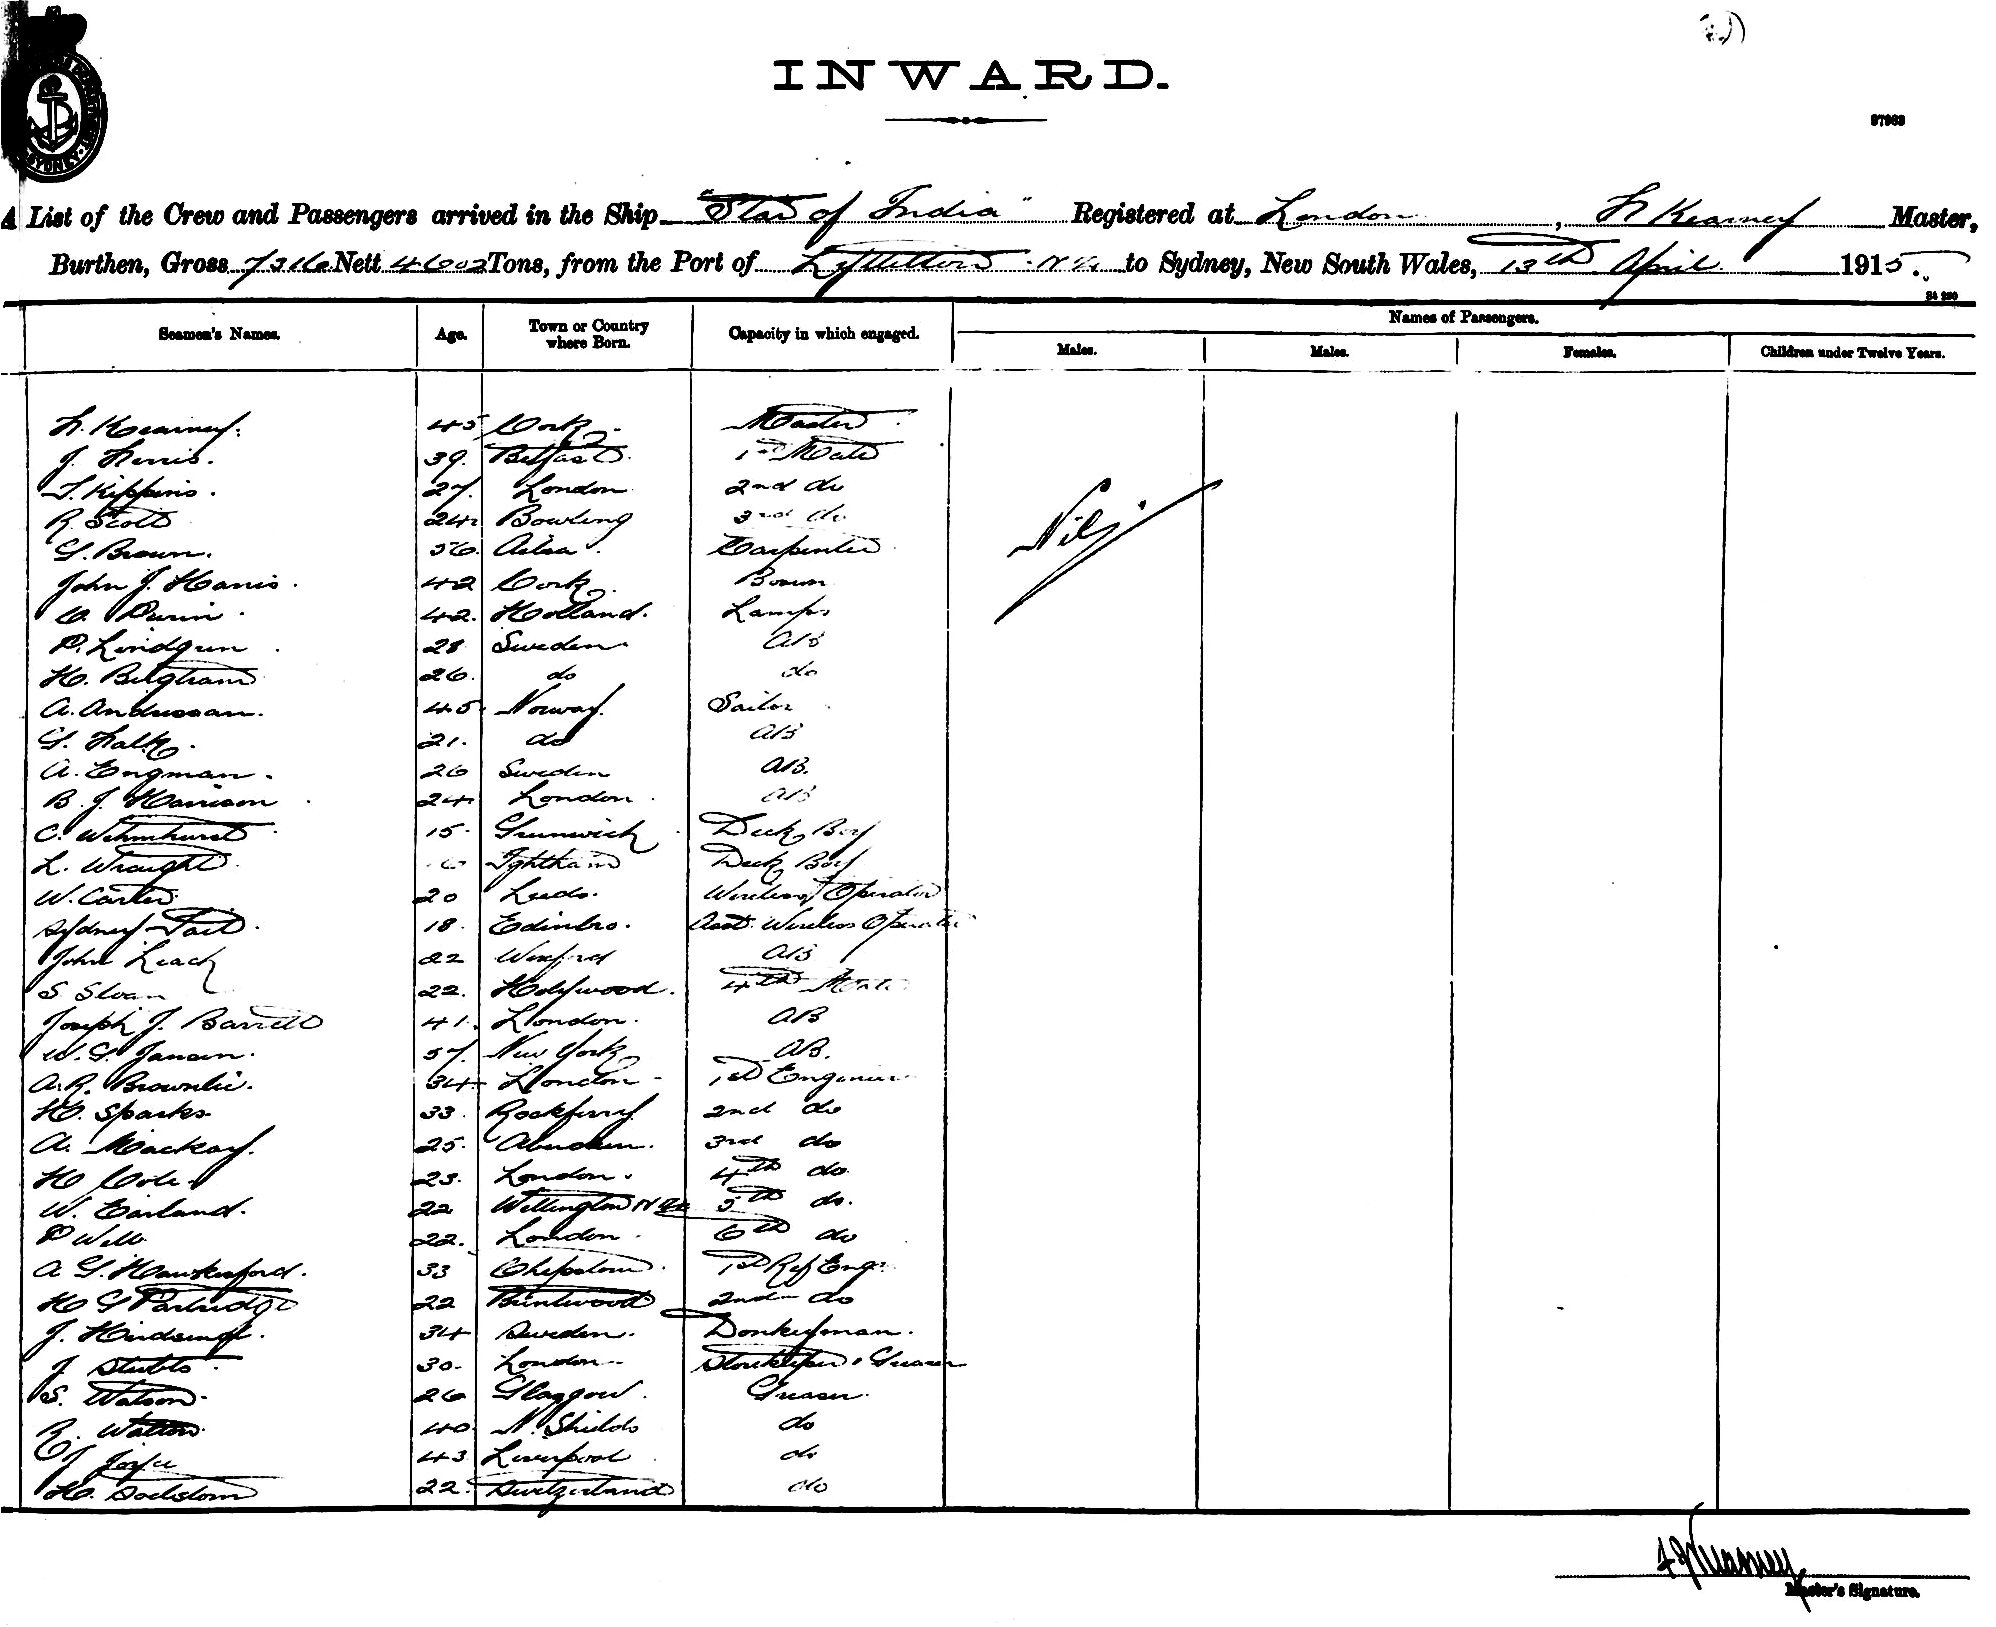 INWARD.
97963
A List of the Crew and Passengers arrived in the Ship "Star of India" Registered at London, F Kearney Master,
Burthen, Gross 7316 Nett 4602 Tons, from the Port of Lyttelton N.Z. to Sydney, New South Wales, 13th April 1915.
Seamen's Names. Age. Town or Country where Born. Capacity in which engaged. Names of Passengers.
Males. Males. Females. Children under Twelve Years.
F. Kearney. 45 Cork. Master.
J. Ferris. 39. Belfast. 1st Mate
27. London 2nd do
R. Scott 24. Bowling 3rd do
G. Brown. 56. Carpenter
Nil
John J. Harris. 42 Cork. Bosun
42. Holland. Lamps
P. Lindgren 28 Sweden. AB
H. 26. do do
A. Andressan. 45. Norway. Sailor
G. Falk. 21. do AB
A. Engman. 26 Sweden AB.
B. J. Harrison 24. London. AB
C. Wilmhurst 15. Greenwich Deck Boy
L. Wraight Ightham Deck Boy
W. Carter 20 Leeds. Wireless Operator
Sydney Tait. 18. Edinbro. Asst. Wireless Operator
John Leach 22 Winford AB
S Sloan 22. Holywood. 4th Mate
Joseph J. Barrett 41. London. AB
W. G. Jansen. 57. New York AB.
A. R. Brownlie. 34. London 1st Engineer
H. Sparks 33. Rockferry 2nd do
A. Mackay. 25. Aberdeen. 3rd do
H Cole. 23. London. 4th do
W. Earland. 22 Wellington NZ 5th do.
P Wells 22. London. 6th do
A G. Hawkesford. 33 Chepstow. 1st Ref Engr.
H G Partridge 22 Brentwood 2nd do
J. 34 Sweden. Donkeyman.
J. Stubbs. 30. London Storekeeper & Greaser
S. Watson. 26 Glasgow. Greaser.
R. Watton. 40. N. Shields do
J Joyce 43 Liverpool do
H. 22. Switzerland do
F Kearney
Master's Signature.